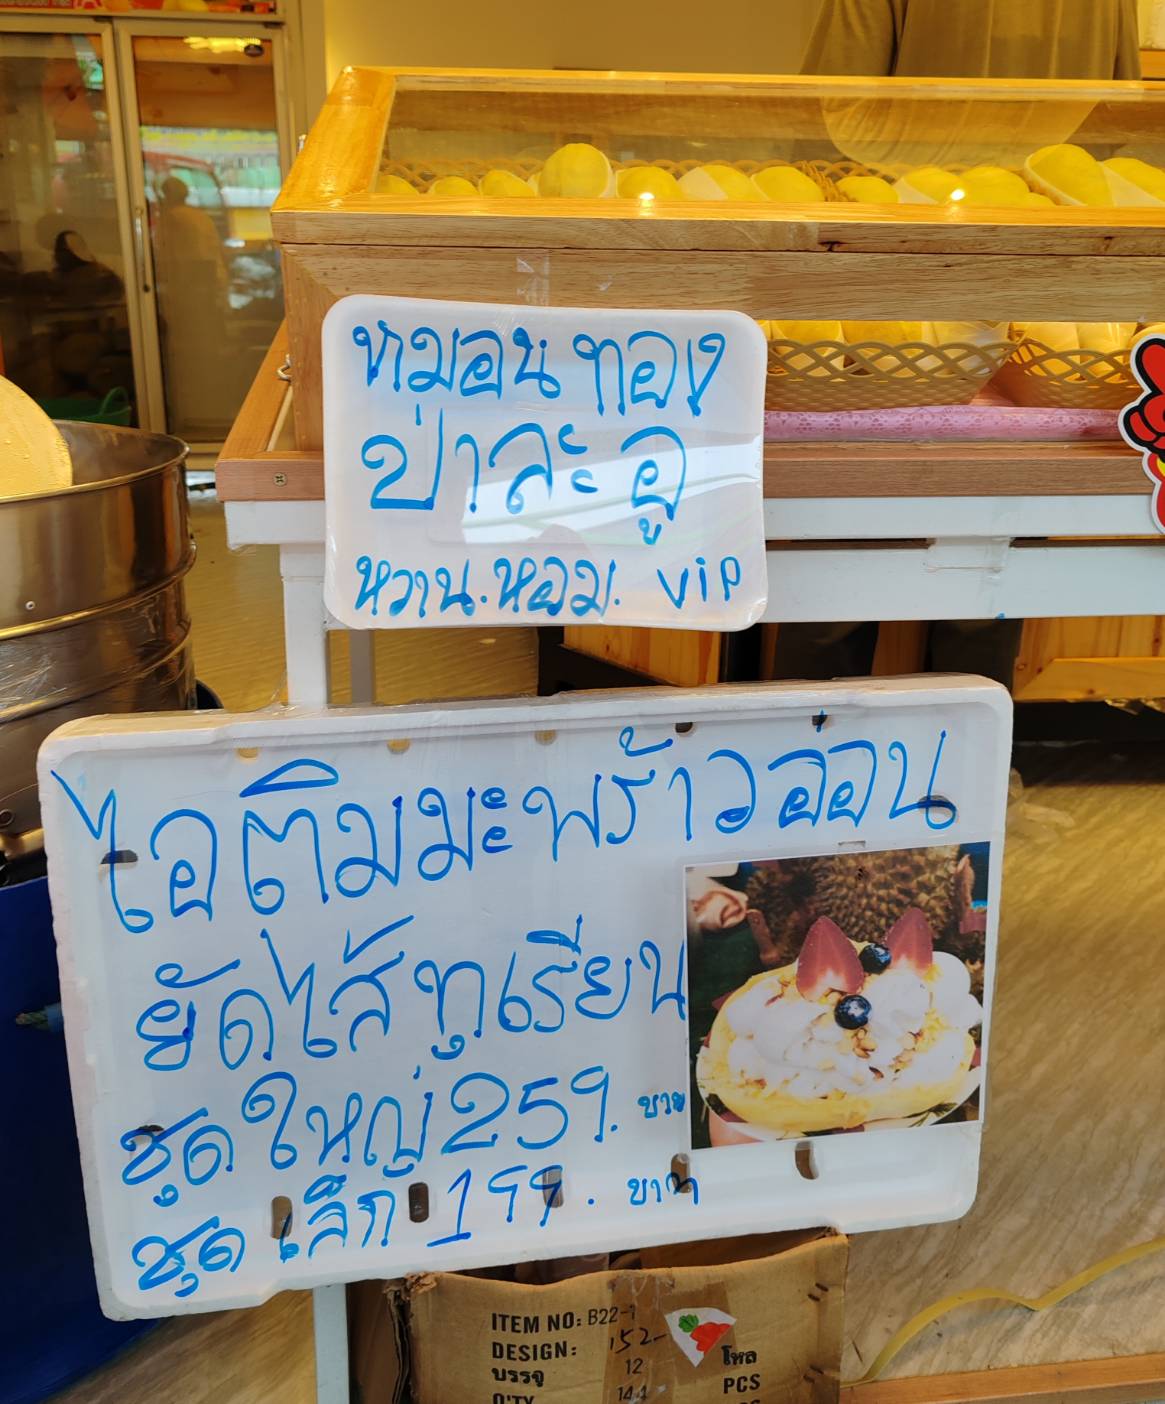 หมอนทอง
ป่าละอู
หวาน.หอม. vip
ไอติมมะพร้าวอ่อน
ยัดไส้ทุเรียน
ชุดใหญ่ 259. บาท
ชุดเล็ก 199. บาท
ITEM NO: B22-1
DESIGN: 152-
บรรจุ 12 โหล
Q'TY 144 PCS